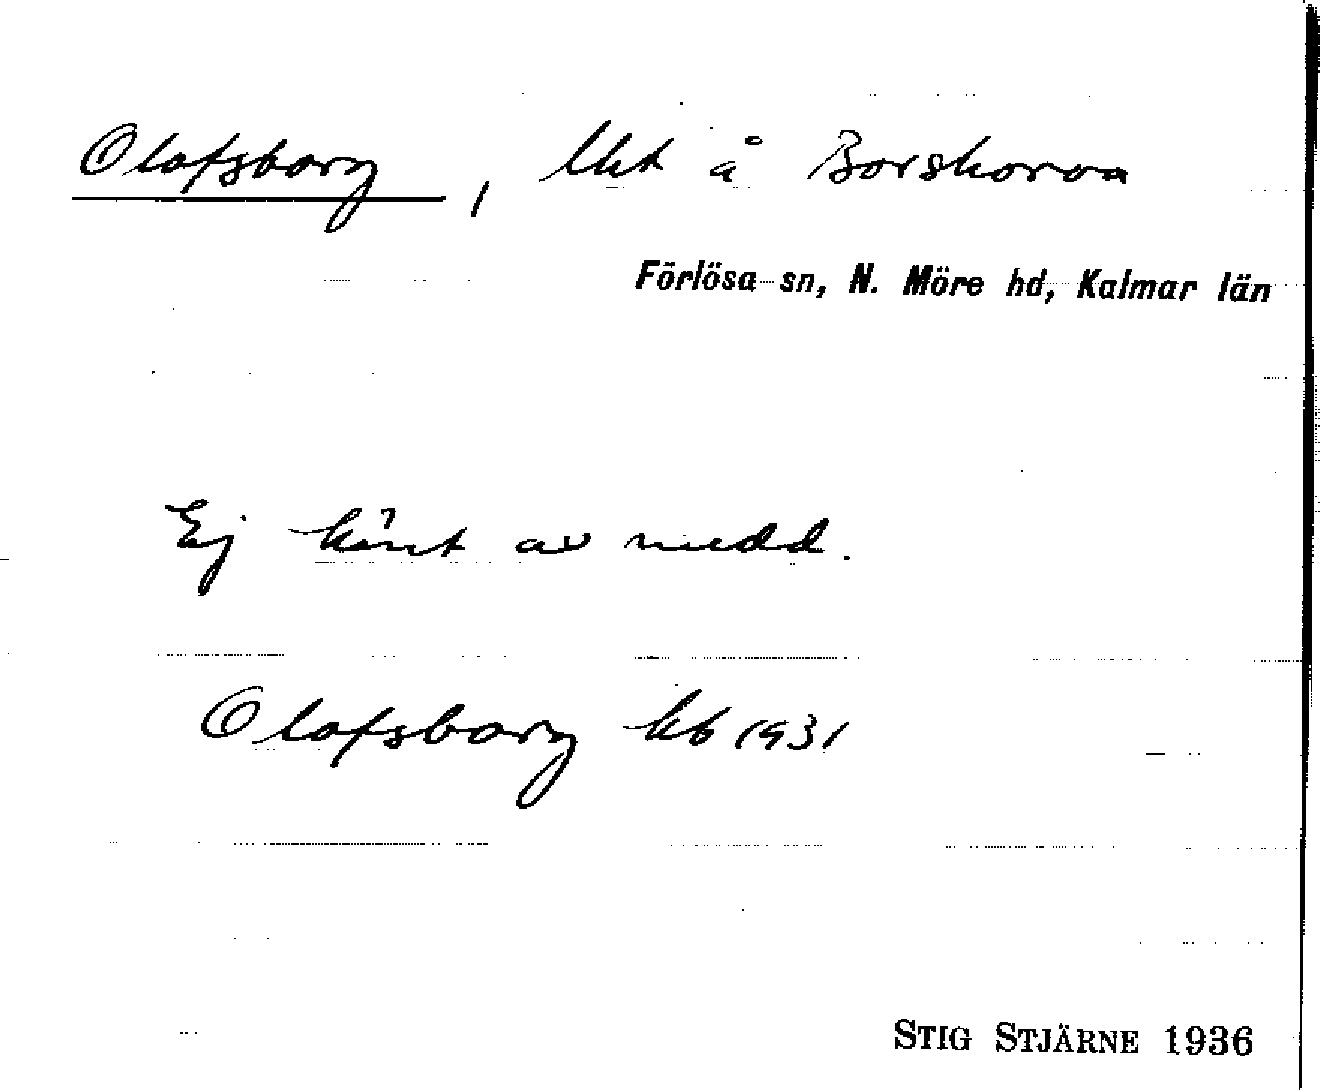 Olofsborg, lht å Borshorva
Förlösa sn, N. Möre hd, Kalmar län
Ej känt av medd.
Olofsborg kb 1931
STIG STJÄRNE 1936